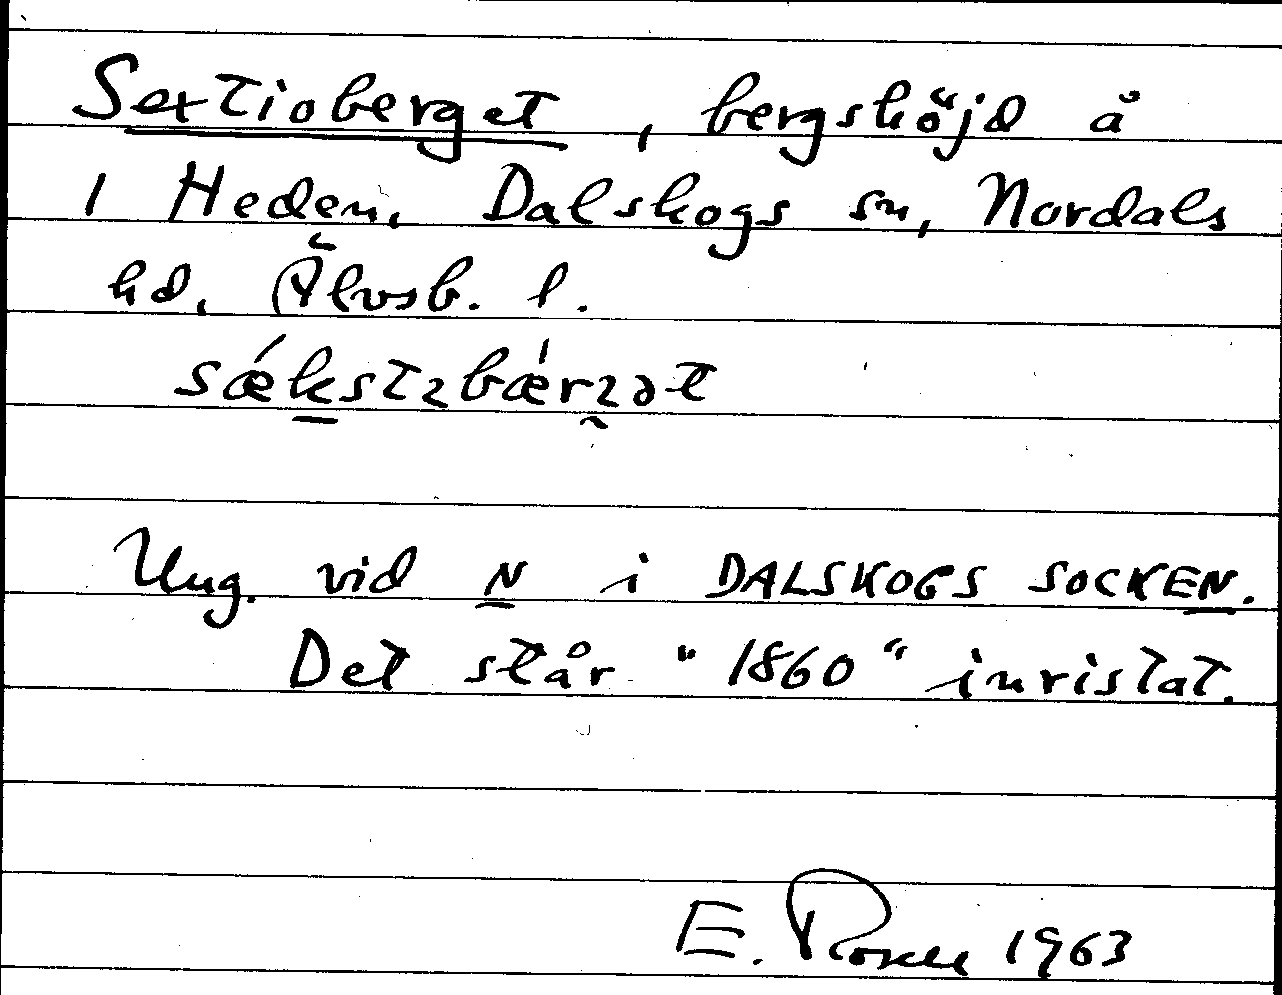 Sextioberget, bergshöjd å
1 Heden, Dalskogs sn, Nordals
hd, Älvsb. l.
Ung. vid N i DALSKOGS SOCKEN.
Det står "1860" inristat.
E. Rosell 1963